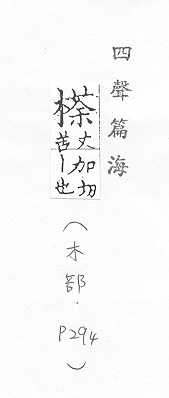 四聲篇海
丈加切
苦丨也
（木部．P294）